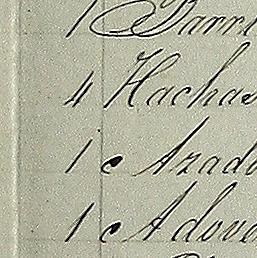 1 Barr
4 Hachas
1 c Azado
1 c Adove